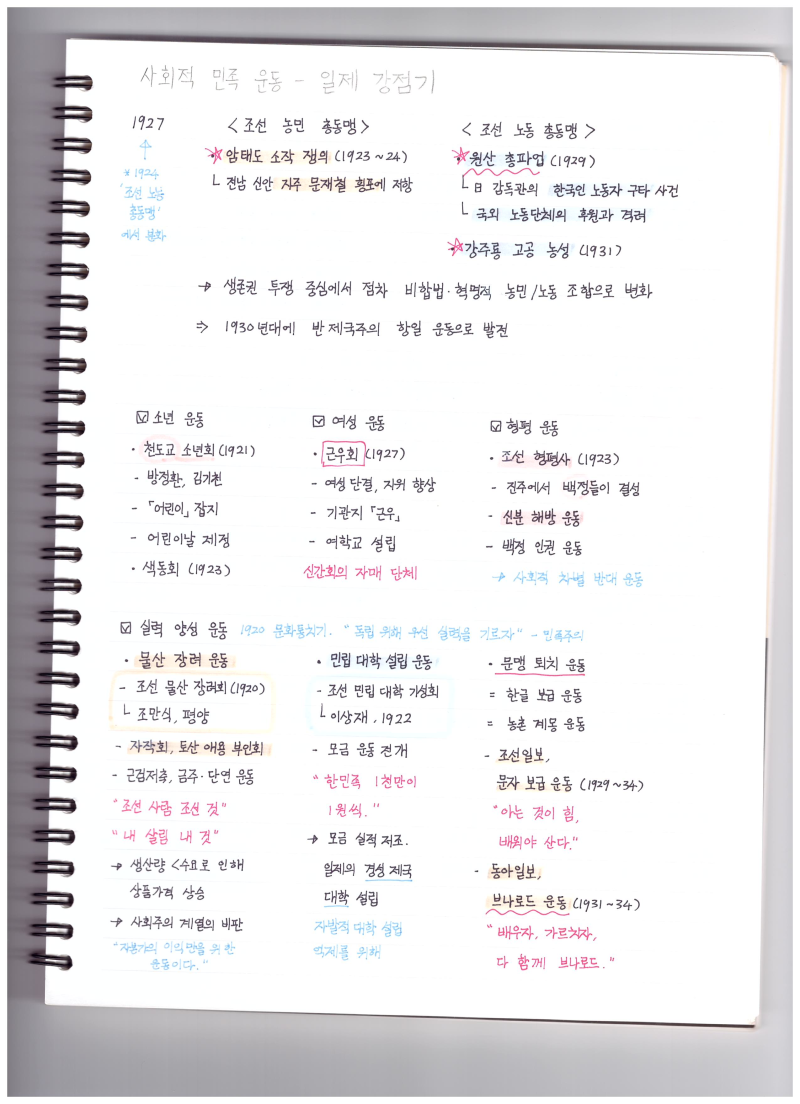 사회적 민족 운동 - 일제 강점기
1927
* 1924
'조선 노농
총동맹'
에서 분화
<조선 농민 총동맹>
암태도 소작 쟁의 (1923 ~ 24)
└ 전남 신안 지주 문재철 횡포에 저항
<조선 노동 총동맹>
원산 총파업 (1929)
└ 日 감독관의 한국인 노동자 구타 사건
└ 국외 노동단체의 후원과 격려
강주룡 고공 농성 (1931)
→ 생존권 투쟁 중심에서 점차 비합법·혁명적 농민/노동 조합으로 변화
⇒ 1930년대에 반제국주의 항일 운동으로 발전
☑ 소년 운동
· 천도교 소년회 (1921)
- 방정환, 김기전
- 「어린이」 잡지
- 어린이날 제정
· 색동회 (1923)
☑ 여성 운동
· 근우회 (1927)
- 여성 단결, 지위 향상
- 기관지 「근우」
- 여학교 설립
신간회의 자매 단체
☑ 형평 운동
· 조선 형평사 (1923)
- 진주에서 백정들이 결성
- 신분 해방 운동
- 백정 인권 운동
→ 사회적 차별 반대 운동
☑ 실력 양성 운동 1920 문화통치기. "독립 위해 우선 실력을 기르자" - 민족주의
· 물산 장려 운동
- 조선 물산 장려회 (1920)
└ 조만식, 평양
- 자작회, 토산 애용 부인회
- 근검저축, 금주·단연 운동
"조선 사람 조선 것"
"내 살림 내 것"
→ 생산량 < 수요로 인해
상품가격 상승
→ 사회주의 계열의 비판
"자본가의 이익만을 위한
운동이다."
· 민립 대학 설립 운동
- 조선 민립 대학 기성회
└ 이상재, 1922
- 모금 운동 전개
"한민족 1천만이
1원씩."
→ 모금 실적 저조.
일제의 경성 제국
대학 설립
자발적 대학 설립
억제를 위해
· 문맹 퇴치 운동
= 한글 보급 운동
= 농촌 계몽 운동
- 조선일보,
문자 보급 운동 (1929~34)
"아는 것이 힘,
배워야 산다."
- 동아일보,
브나로드 운동 (1931~34)
"배우자, 가르치자,
다 함께 브나로드."